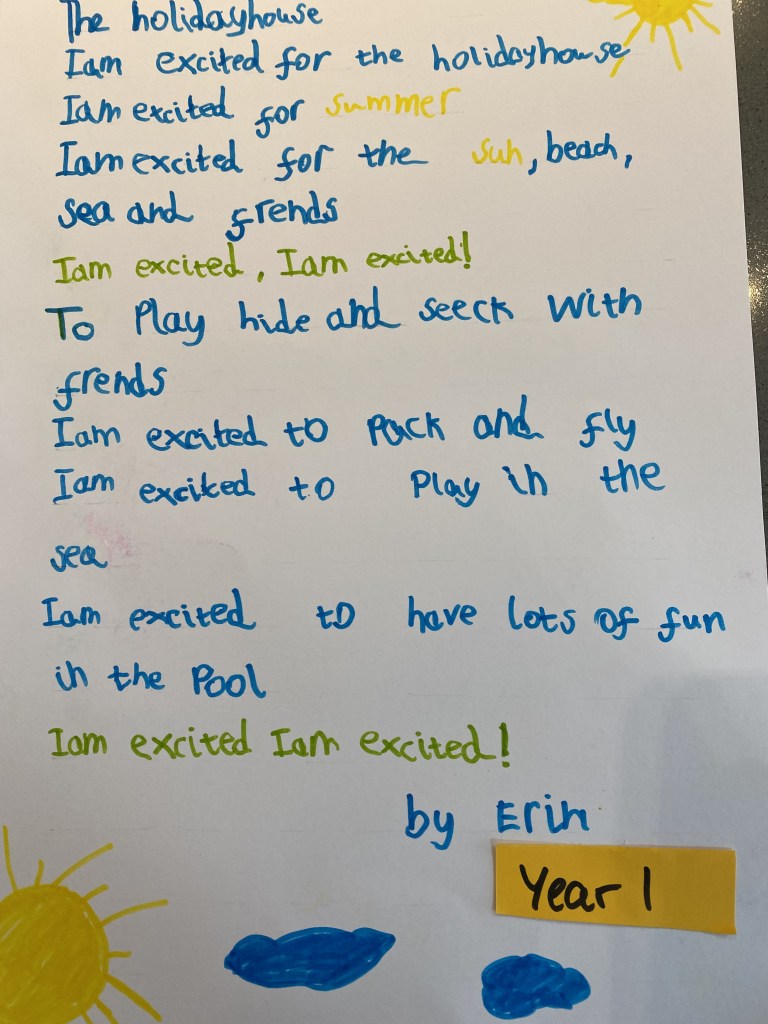 The holidayhouse
Iam excited for the holidayhouse
Iam excited for summer
Iam excited for the sun, beach,
sea and frends
Iam excited, Iam excited!
To Play hide and seeck with
frends
Iam excited to pack and fly
Iam excited to Play in the
sea
Iam excited to have lots of fun
in the Pool
Iam excited Iam excited!
by Erin
Year 1